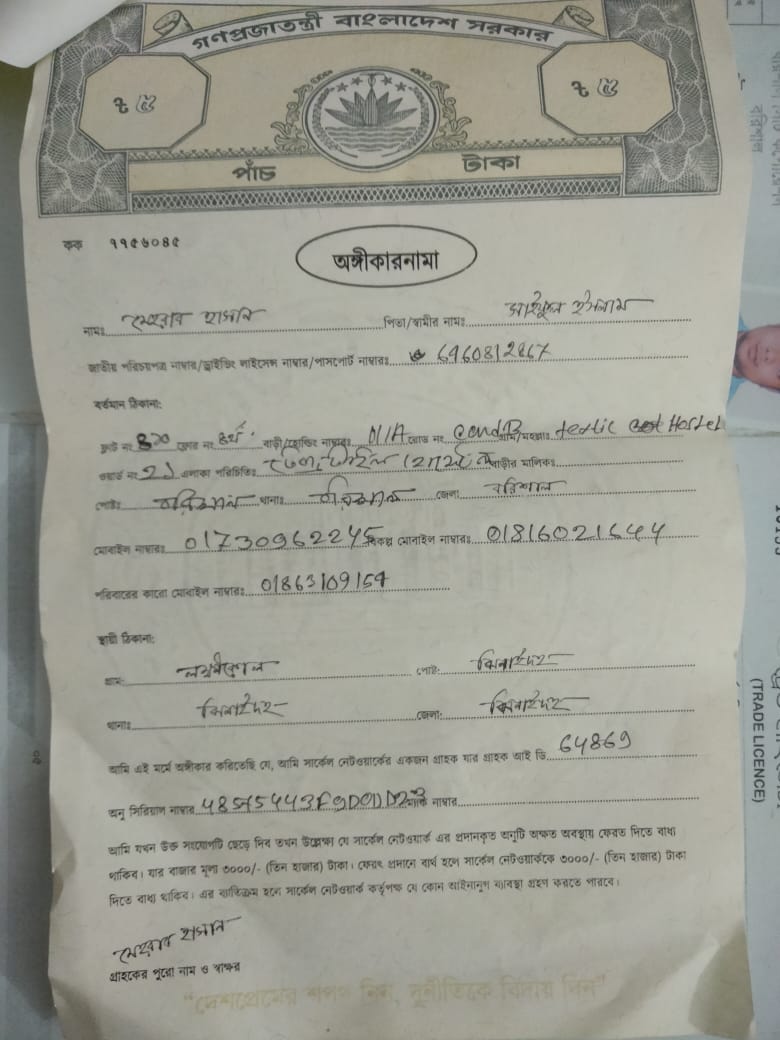 গণপ্রজাতন্ত্রী বাংলাদেশ সরকার
৳ ৫ ৳ ৫
পাঁচ টাকা
কক ৭৭৫৬০৪৫
অঙ্গীকারনামা
নামঃ মেহরাব হাসান পিতা/স্বামীর নামঃ সাইফুল ইসলাম
জাতীয় পরিচয়পত্র নাম্বার/ড্রাইভিং লাইসেন্স নাম্বার/পাসপোর্ট নাম্বারঃ 6960812867
বর্তমান ঠিকানা:
ফ্লাট নং ফ্লোর নং বাড়ী/হোল্ডিং নাম্বারঃ N/A রোড নং গ্রাম/মহল্লাঃ Hostel
ওয়ার্ড নং 21 এলাকা পরিচিতিঃ বাড়ীর মালিকঃ
পোষ্টঃ বরিশাল থানাঃ বরিশাল জেলাঃ বরিশাল
মোবাইল নাম্বারঃ 01730962245 বিকল্প মোবাইল নাম্বারঃ 01816021644
পরিবারের কারো মোবাইল নাম্বারঃ 01863109154
স্থায়ী ঠিকানা:
গ্রামঃ পোষ্টঃ ঝিনাইদহ
থানাঃ ঝিনাইদহ জেলাঃ ঝিনাইদহ
আমি এই মর্মে অঙ্গীকার করিতেছি যে, আমি সার্কেল নেটওয়ার্কের একজন গ্রাহক যার গ্রাহক আই ডি 64869
অনু সিরিয়াল নাম্বার নাম্বার
আমি যখন উক্ত সংযোগটি ছেড়ে দিব তখন উল্লেক্ষ্য যে সার্কেল নেটওয়ার্ক এর প্রদানকৃত অনুটি অক্ষত অবস্থায় ফেরত দিতে বাধ্য
থাকিব। যার বাজার মূল্য ৩০০০/- (তিন হাজার) টাকা। ফেরৎ প্রদানে ব্যর্থ হলে সার্কেল নেটওয়ার্ককে ৩০০০/- (তিন হাজার) টাকা
দিতে বাধ্য থাকিব। এর ব্যতিক্রম হলে সার্কেল নেটওয়ার্ক কর্তৃপক্ষ যে কোন আইনানুগ ব্যবস্থা গ্রহণ করতে পারবে।
মেহরাব হাসান
গ্রাহকের পুরো নাম ও স্বাক্ষর
"দেশপ্রেমের শপথ নিন, দুর্নীতিকে বিদায় দিন"
বরিশাল
(TRADE LICENCE)